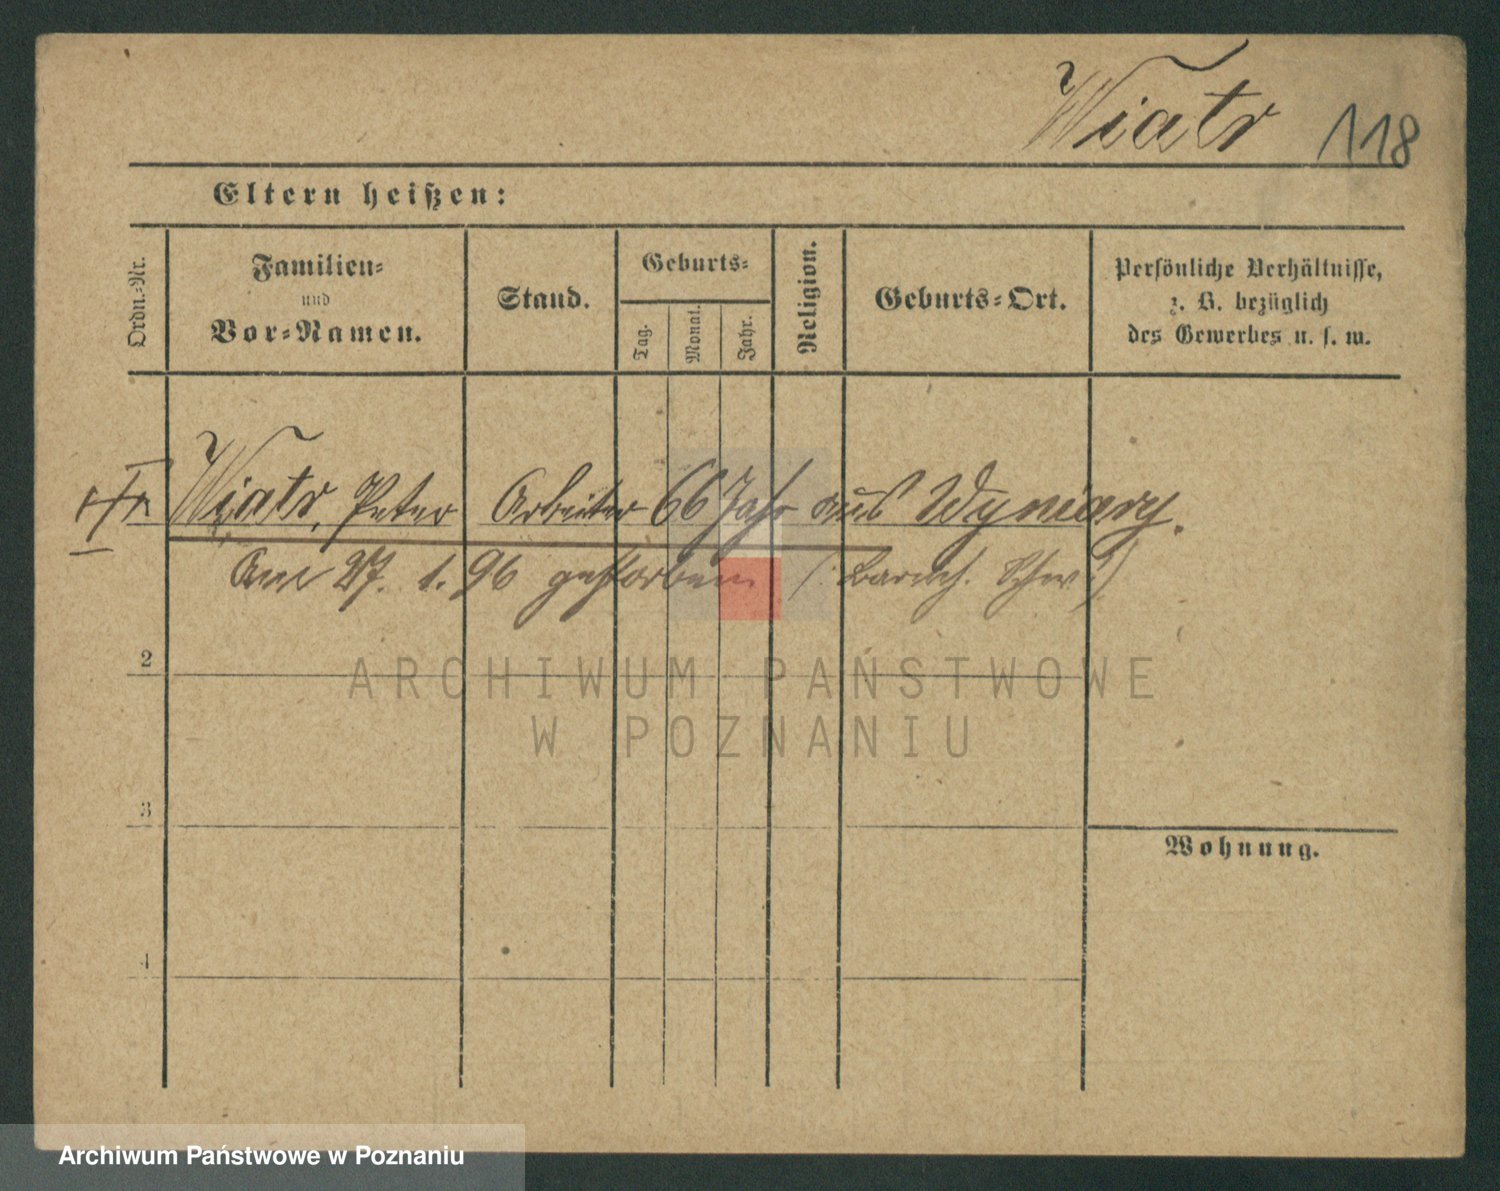 Wiatr 118
Eltern heißen:
Ordn.-Nr.
Familien-
und
Vor-Namen.
Stand.
Geburts-
Tag.
Monat.
Jahr.
Religion.
Geburts-Ort.
Persönliche Verhältnisse,
z. B. bezüglich
des Gewerbes u. s. w.
Wiatr, Peter Arbeiter 66 Jahr aus Wyniary.
Am 27. 1. 96 gestorben (: Barmh. Schw:)
2
3
4
Wohnung.
ARCHIWUM PAŃSTWOWE
W POZNANIU
Archiwum Państwowe w Poznaniu